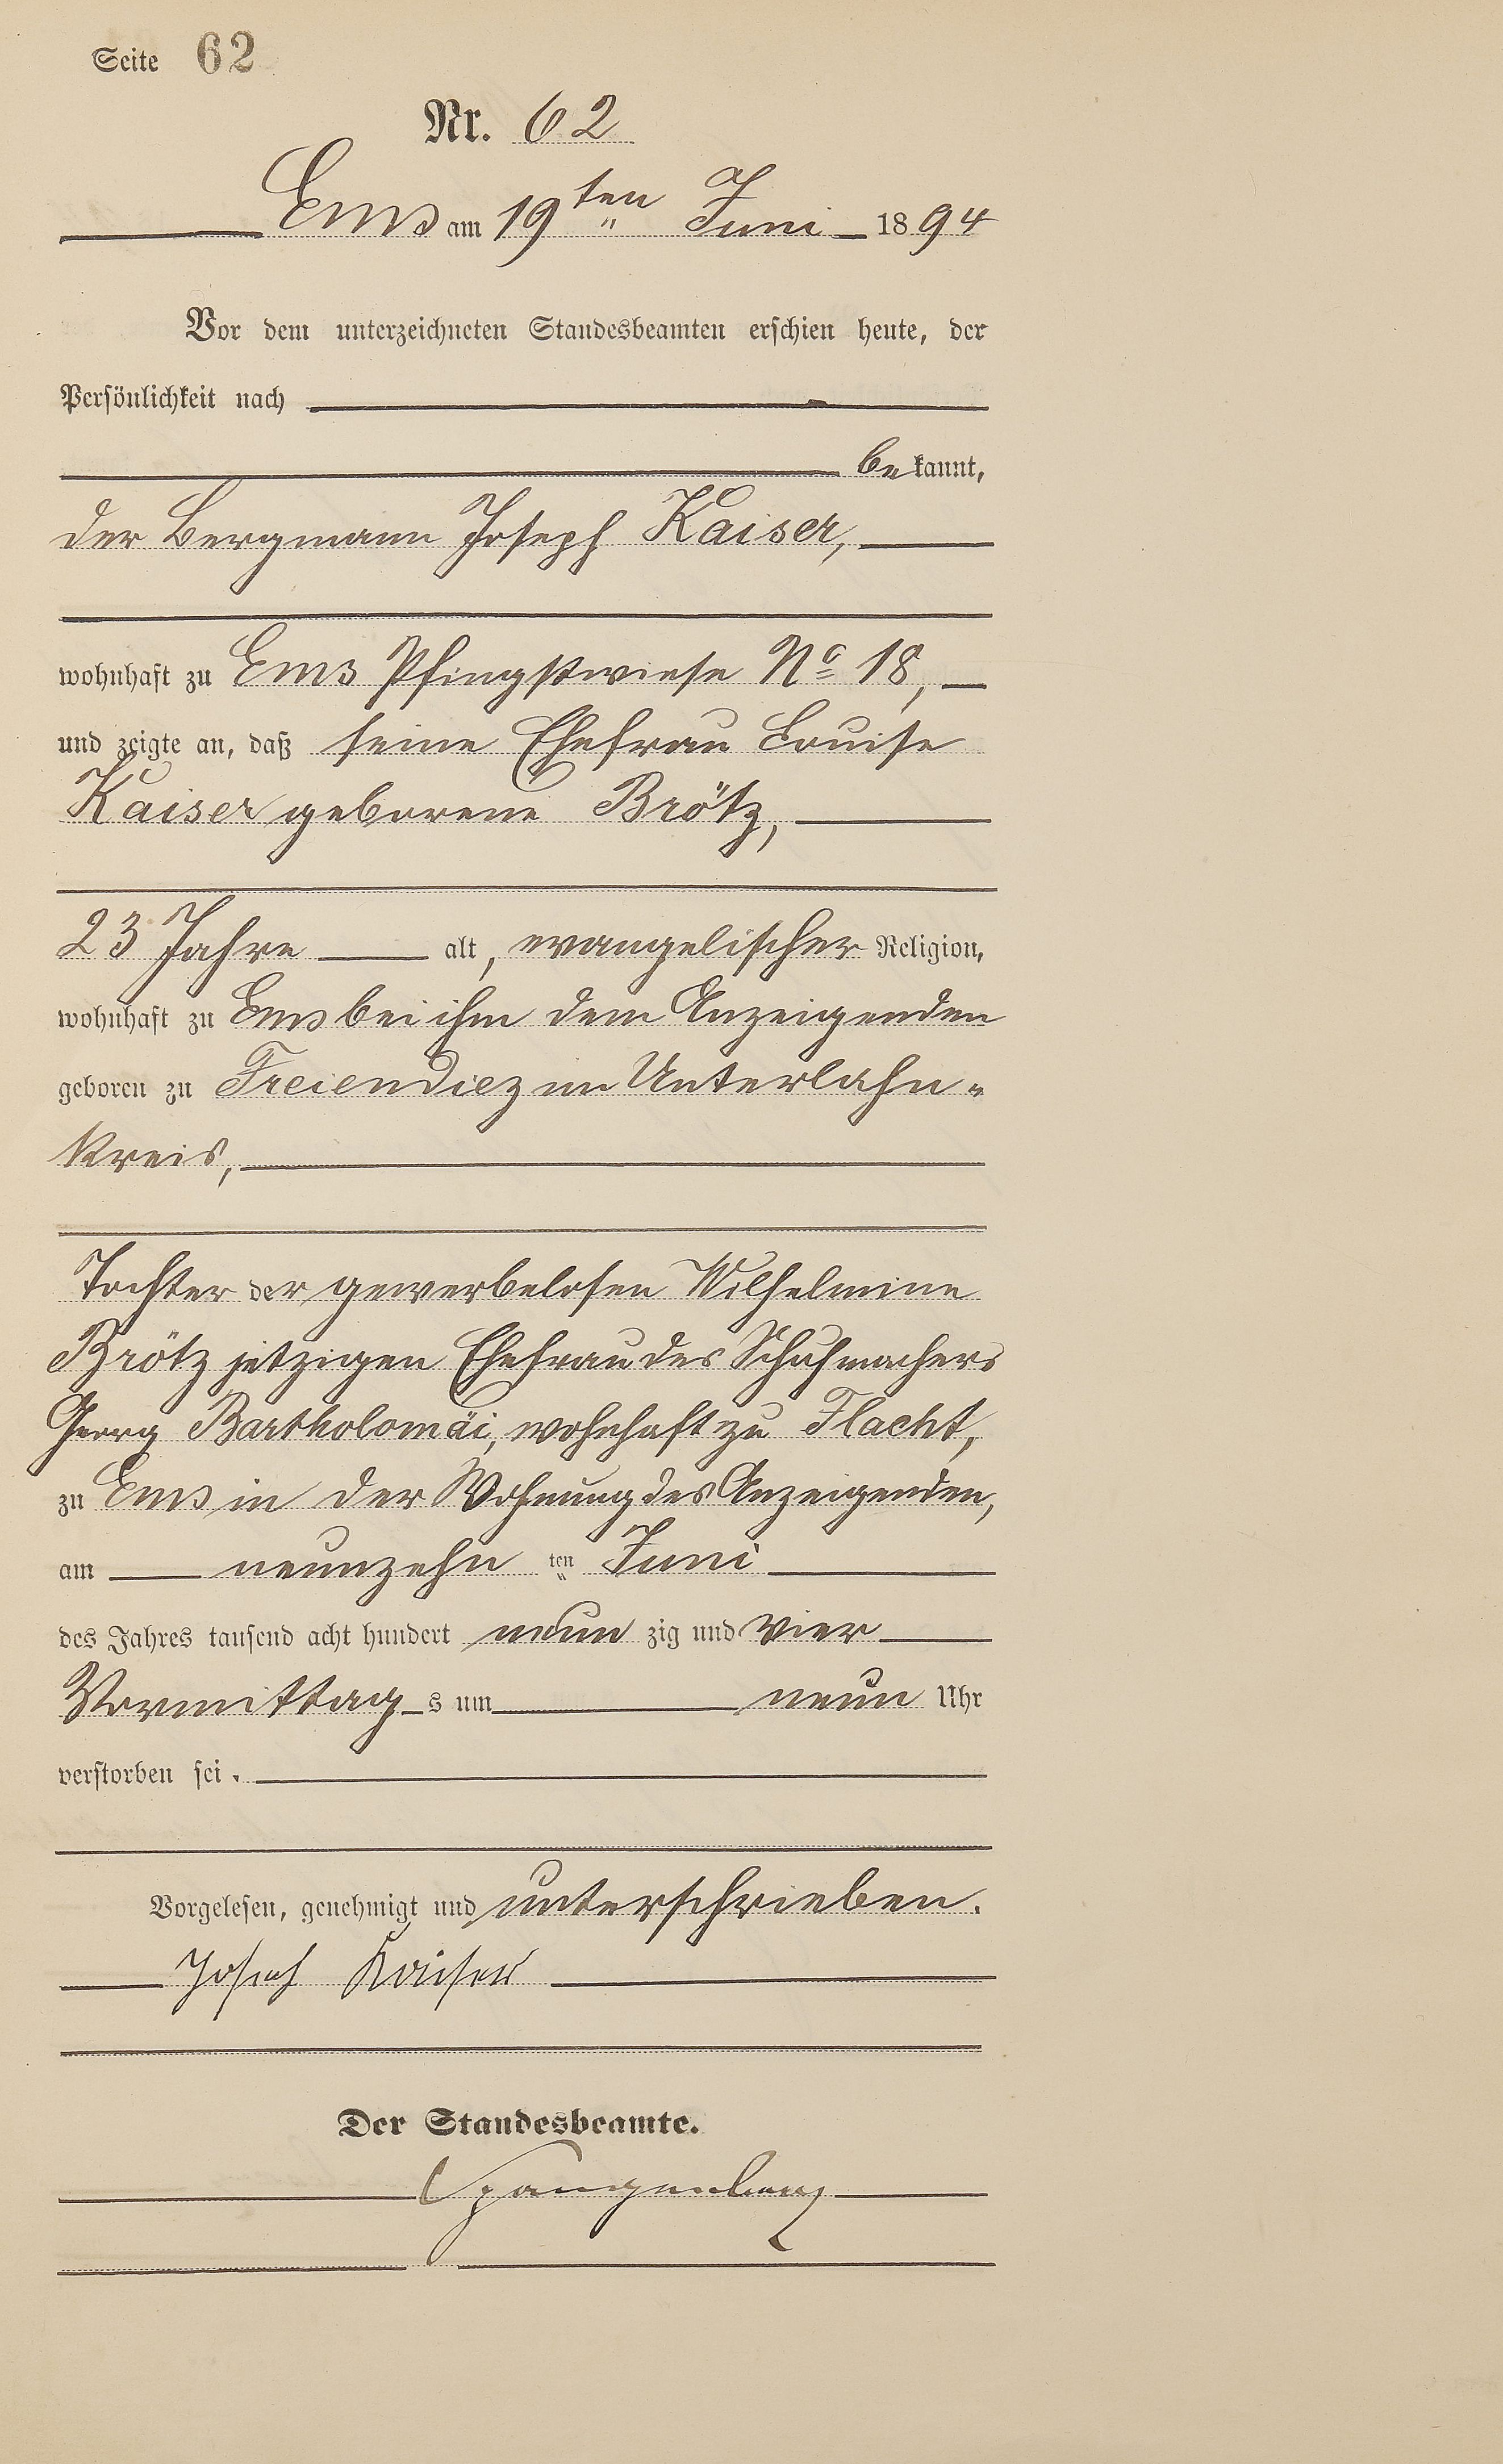 Seite 62
Nr. 62
Ems am 19ten Juni 1894
Vor dem unterzeichneten Standesbeamten erschien heute, der
Persönlichkeit nach
bekannt,
der Bergmann Joseph Kaiser,
wohnhaft zu Ems Pfingstwiese No 18,
und zeigte an, daß seine Ehefrau Louise
Kaiser geborene Brötz,
23 Jahre alt, evangelischer Religion,
wohnhaft zu Ems bei ihm dem Anzeigenden
geboren zu Freiendiez im Unterlahn-
kreis,
Tochter der gewerbelosen Wilhelmine
Brötz jetzigen Ehefrau des Schuhmachers
Georg Bartholomäi, wohnhaft zu Flacht,
zu Ems in der Wohnung des Anzeigenden,
am neunzehn ten Juni
des Jahres tausend acht hundert neun zig und vier
Vormittags um neun Uhr
verstorben sei.
Vorgelesen, genehmigt und unterschrieben.
Joseph Kaiser
Der Standesbeamte.
Spangenberg